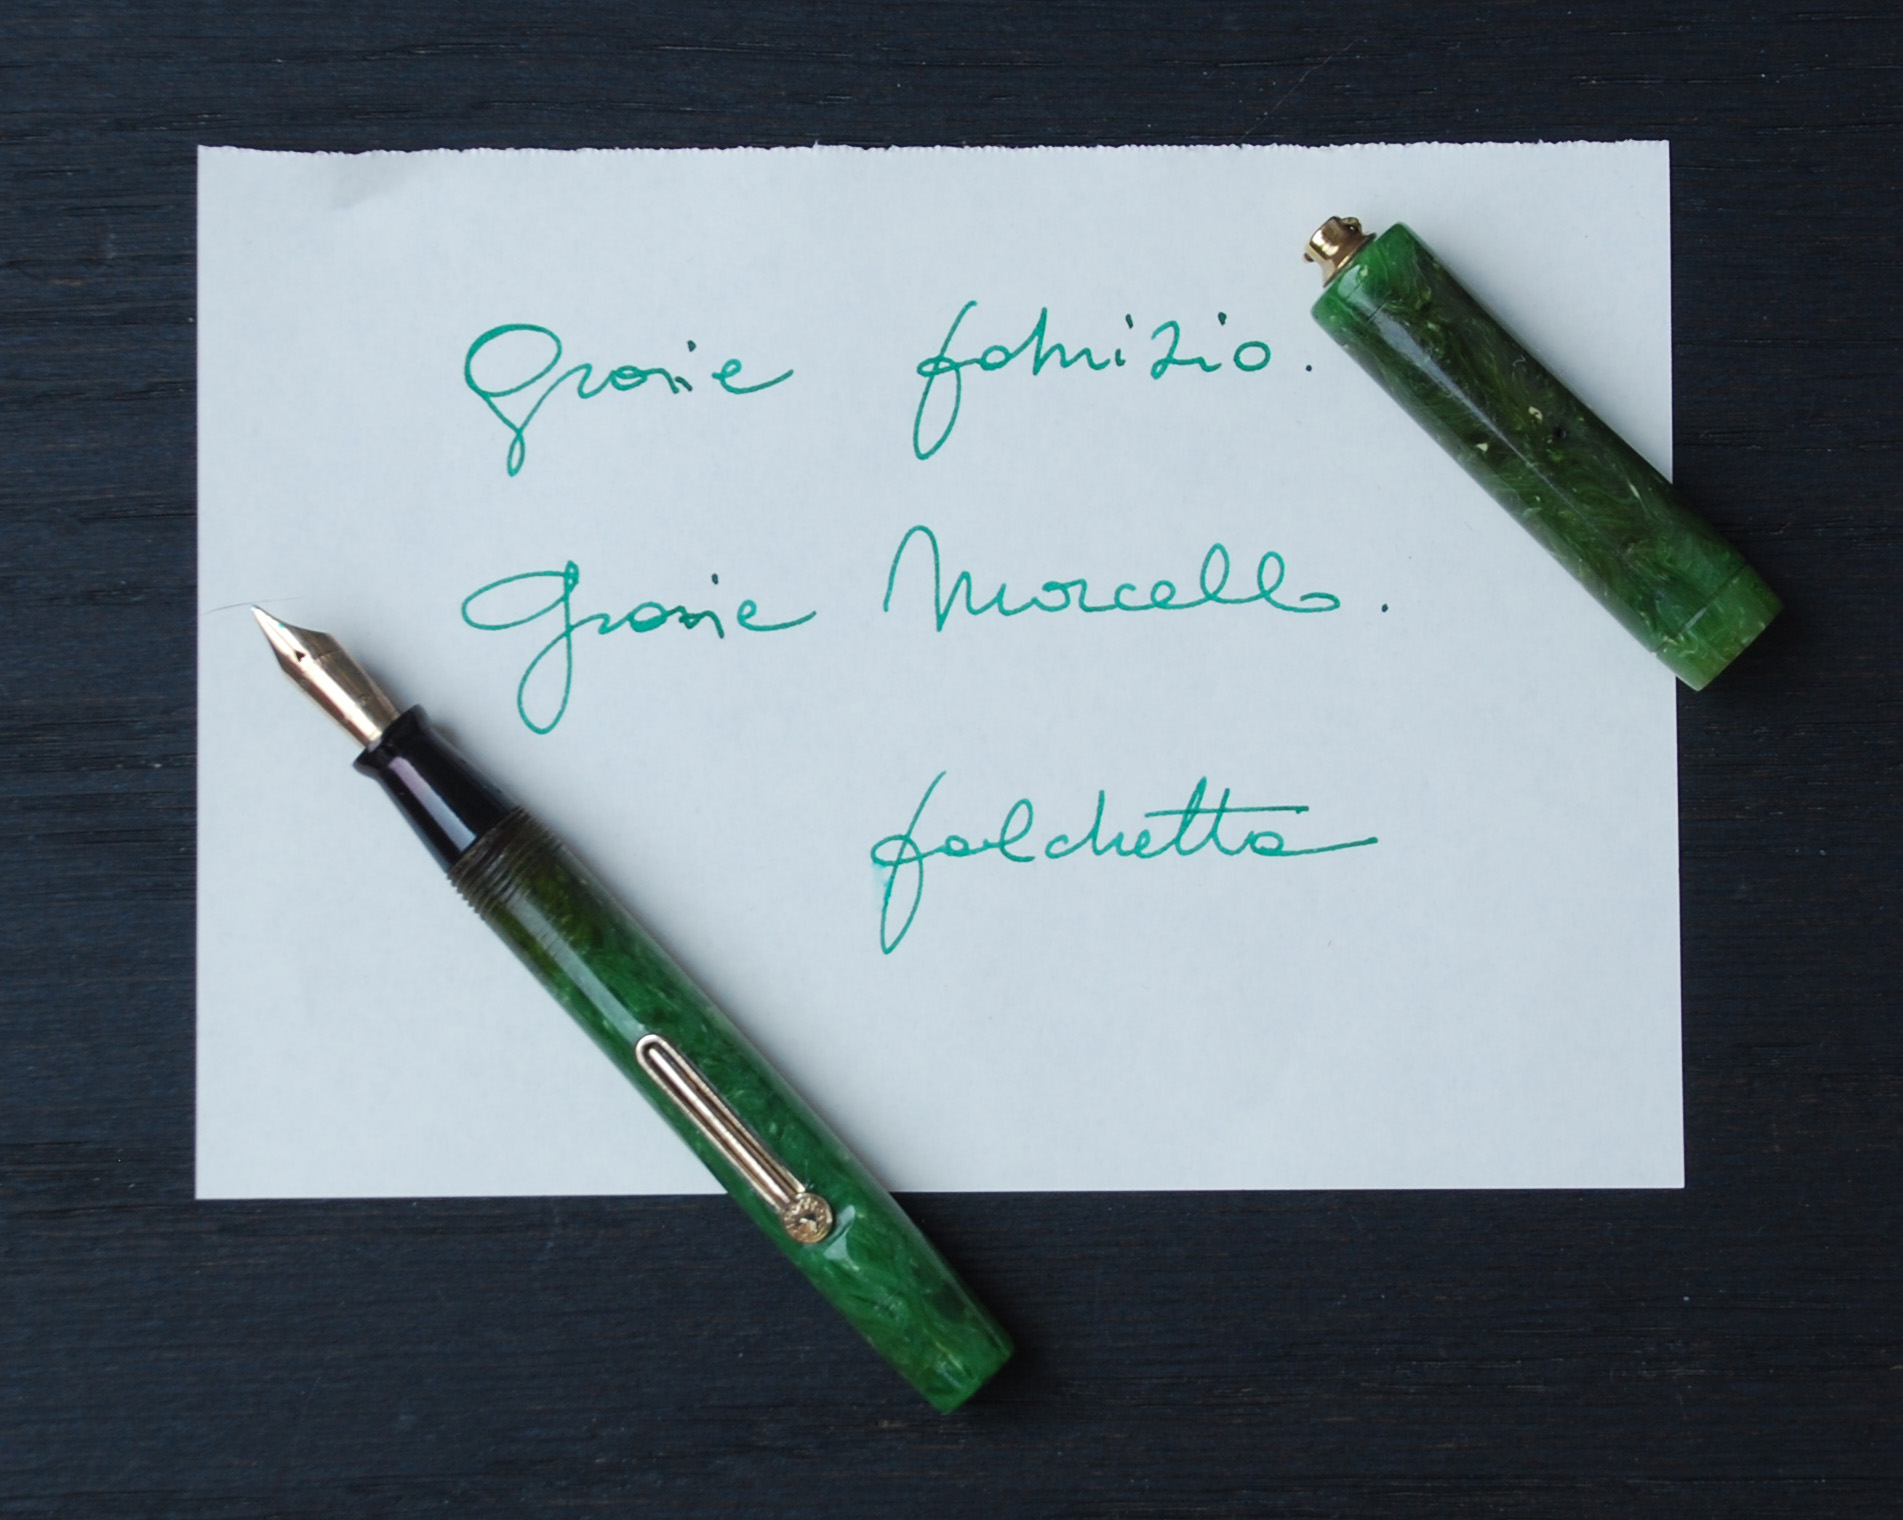 Grazie Fabrizio.
Grazie Marcello.
Falchetta